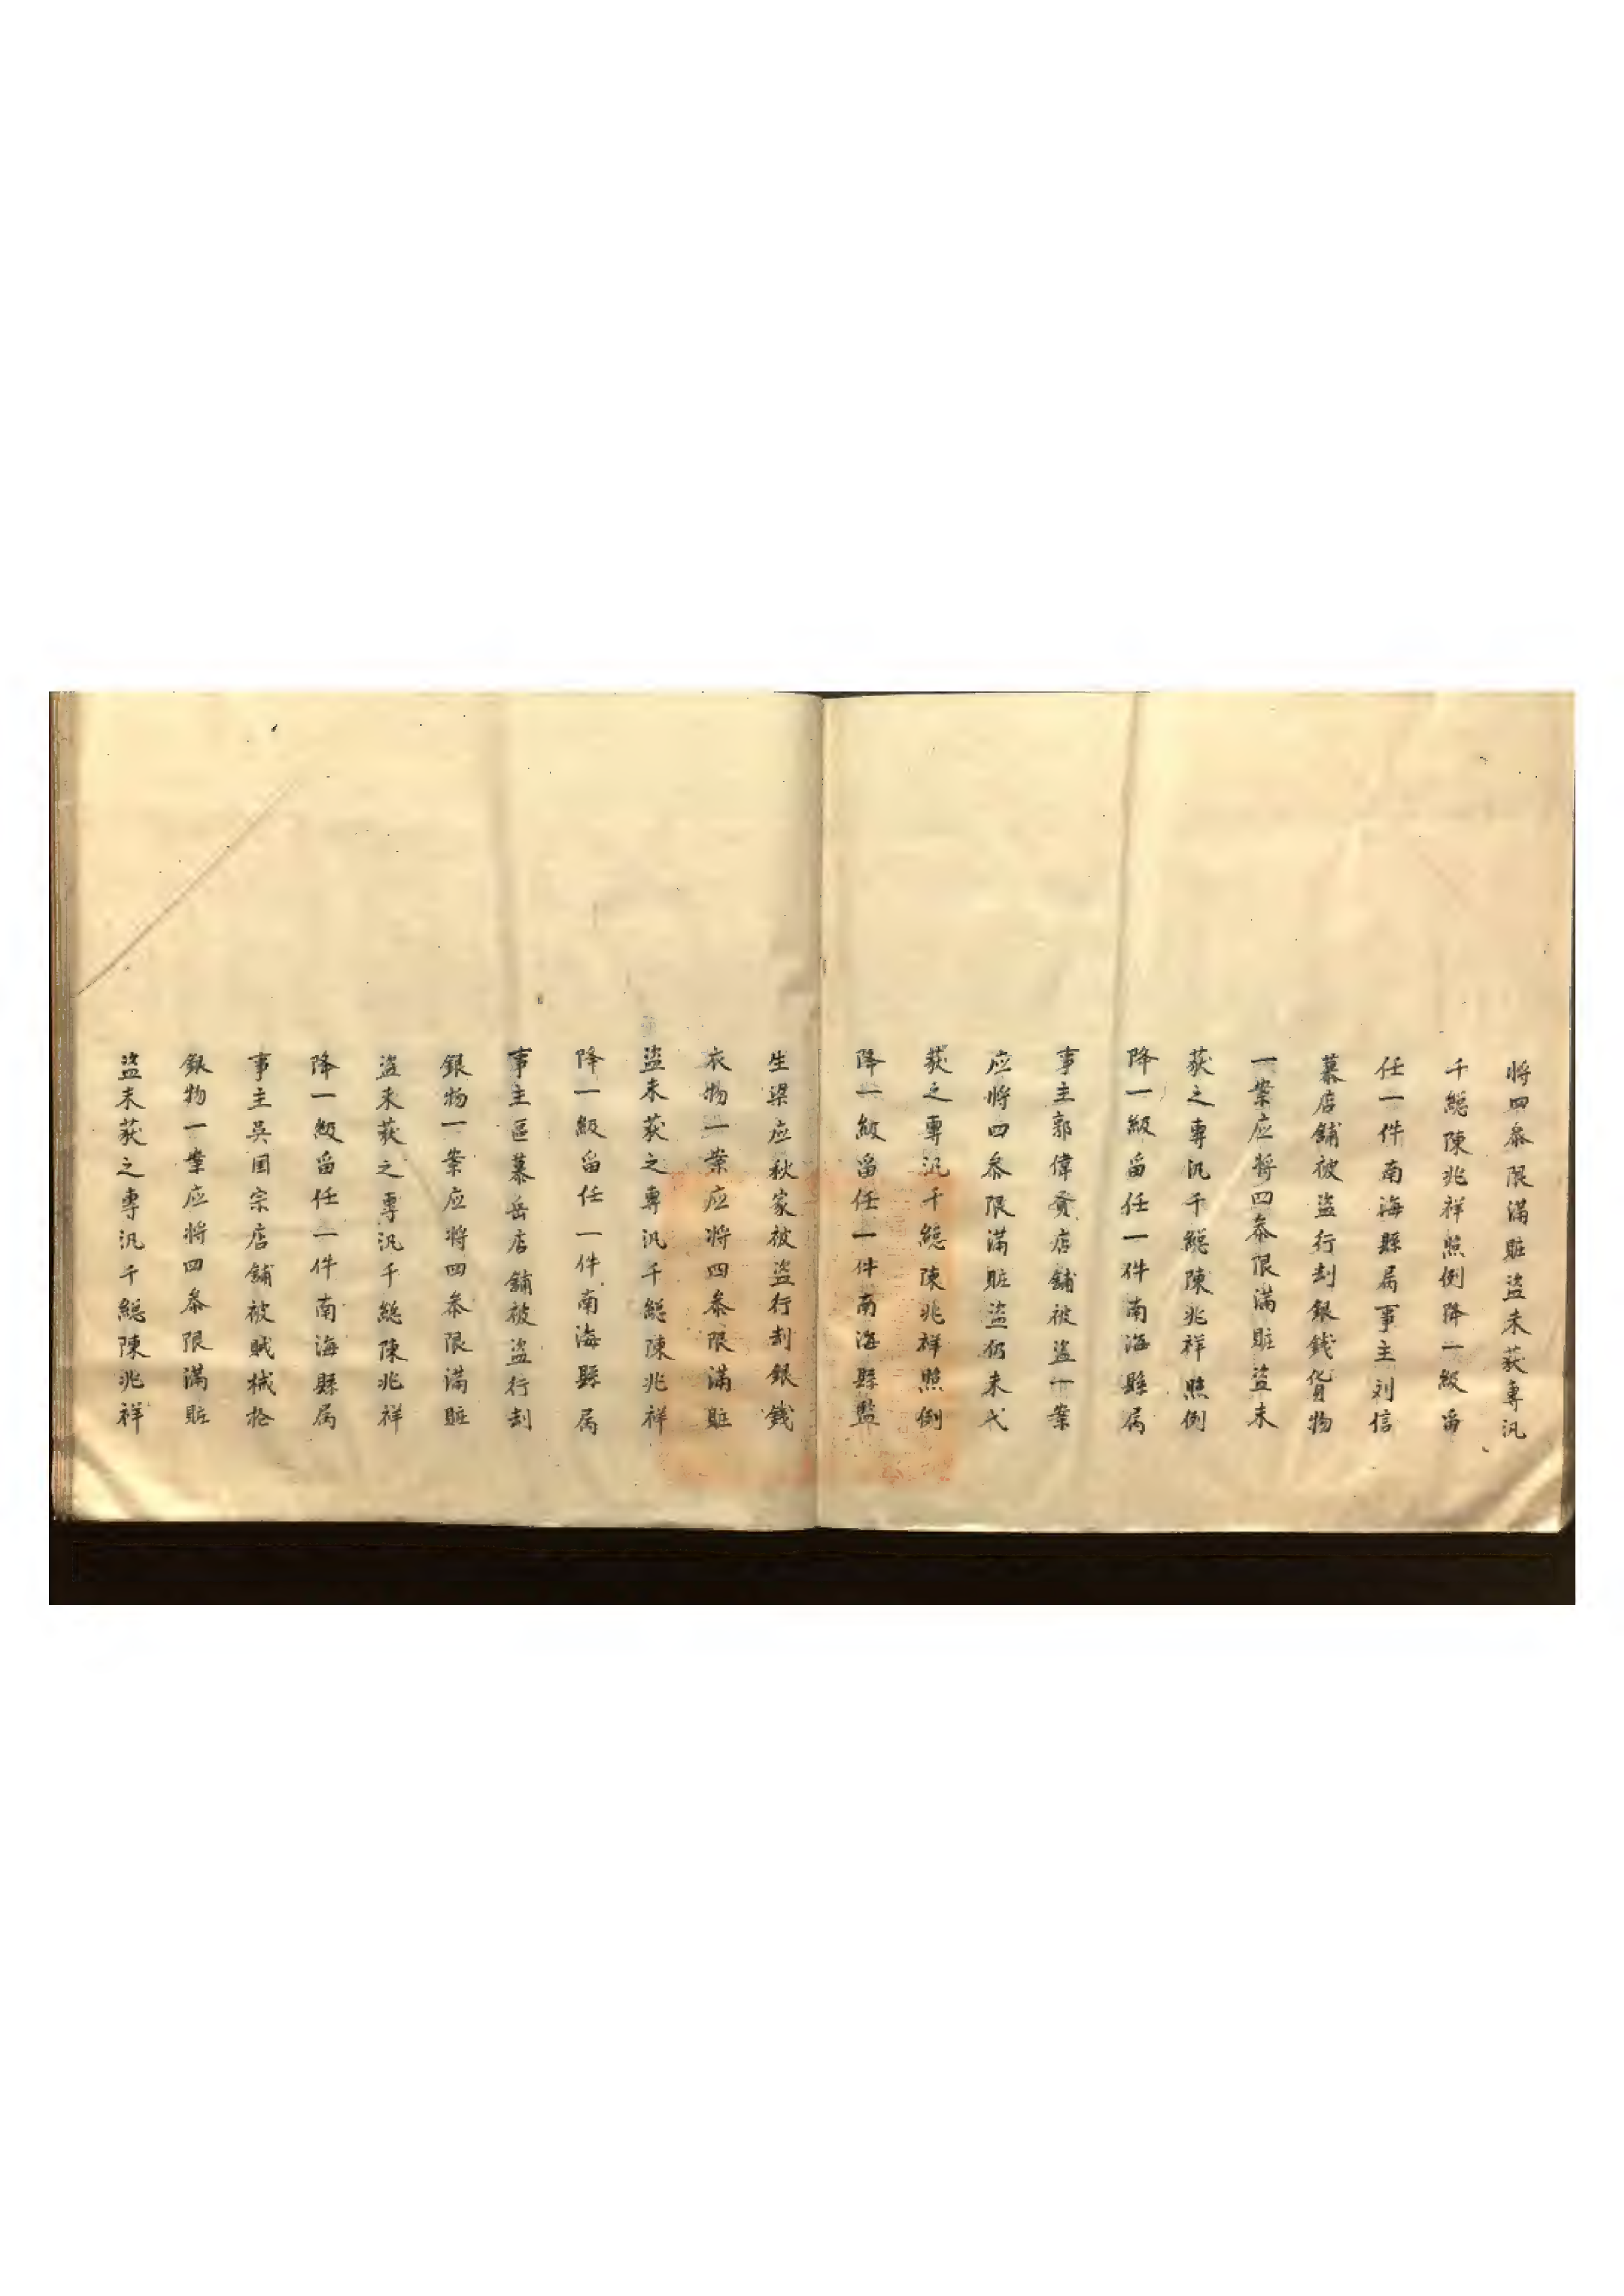 将四叅限滿賍盗未获專汛
千総陳兆祥照例降一級畄
任一件南海縣属事主刘信
慕店舖被盗行刦銀銭貨物
一案应将四叅限滿賍盗未
获之專汛千総陳兆祥照例
降一級畄任一件南海縣属
事主郭偉賫店舖被盗一案
应将四叅限滿賍盗仍未弋
获之專汛千総陳兆祥照例
降一級畄任一件南海縣監
生梁应秋家被盗行刦銀銭
衣物一案应将四叅限滿賍
盗未获之專汛千総陳兆祥
降一級畄任一件南海縣属
事主區慕岳店舖被盗行刦
銀物一案应将四叅限滿賍
盗未获之專汛千総陳兆祥
降一級畄任一件南海縣属
事主吳囯宗店舖被賊械抢
銀物一案应将四叅限滿賍
盗未获之專汛千総陳兆祥